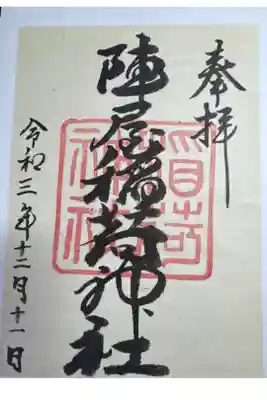 奉拝
陣屋稲荷神社
令和三年十二月十一日